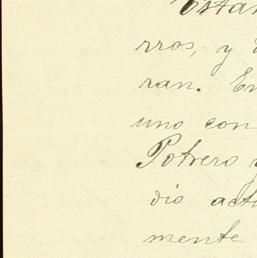 Estan
rros, y
ran. En
uno con
Potrero y
dio actu
mente